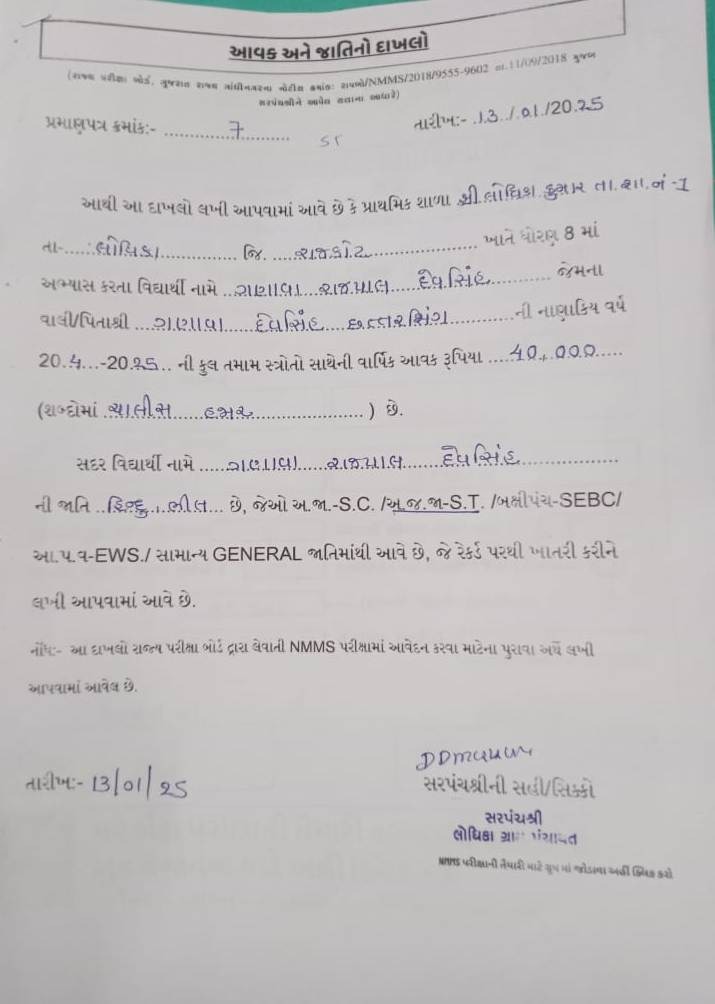 આવક અને જાતિનો દાખલો
(રાજ્ય પરીક્ષા બોર્ડ, ગુજરાત રાજ્ય ગાંધીનગરના નોટીસ ક્રમાંક: રાપબો/NMMS/2018/9555-9602 તા.11/09/2018 મુજબ
સરપંચશ્રીને આપેલ સત્તાના આધારે)
પ્રમાણપત્ર ક્રમાંક:- 7 તારીખ:- 13/01/2025
આથી આ દાખલો લખી આપવામાં આવે છે કે પ્રાથમિક શાળા શ્રી લોધિકા કુમાર તા.શા.નં-1
તા-....લોધિકા.... જિ. ....રાજકોટ.... ખાતે ધોરણ 8 માં
અભ્યાસ કરતા વિદ્યાર્થી નામે ..ગણાવા....રાજપાલ....દેવસિંહ.... જેમના
વાલી/પિતાશ્રી ....ગણાવા....દેવસિંહ....છત્તરસિંગ.... ની નાણાકિય વર્ષ
20.4...-20.25.. ની કુલ તમામ સ્ત્રોતો સાથેની વાર્ષિક આવક રૂપિયા ....40,000....
(શબ્દોમાં ..ચાલીસ....હજાર.... ) છે.
સદર વિદ્યાર્થી નામે ....ગણાવા....રાજપાલ....દેવસિંહ....
ની જાતિ ..હિન્દુ...ભીલ... છે, જેઓ અ.જા.-S.C. /અ.જ.જા-S.T. /બક્ષીપંચ-SEBC/
આ.પ.વ-EWS./ સામાન્ય GENERAL જાતિમાંથી આવે છે, જે રેકર્ડ પરથી ખાતરી કરીને
લખી આપવામાં આવે છે.
નોંધ:- આ દાખલો રાજ્ય પરીક્ષા બોર્ડ દ્વારા લેવાતી NMMS પરીક્ષામાં આવેદન કરવા માટેના પુરાવા અર્થે લખી
આપવામાં આવેલ છે.
તારીખ:- 13/01/25
સરપંચશ્રીની સહી/સિક્કો
સરપંચશ્રી
લોધિકા ગ્રામ પંચાયત
NMMS પરીક્ષાની તૈયારી માટે ગ્રુપ માં જોડાવા અહીં ક્લિક કરો